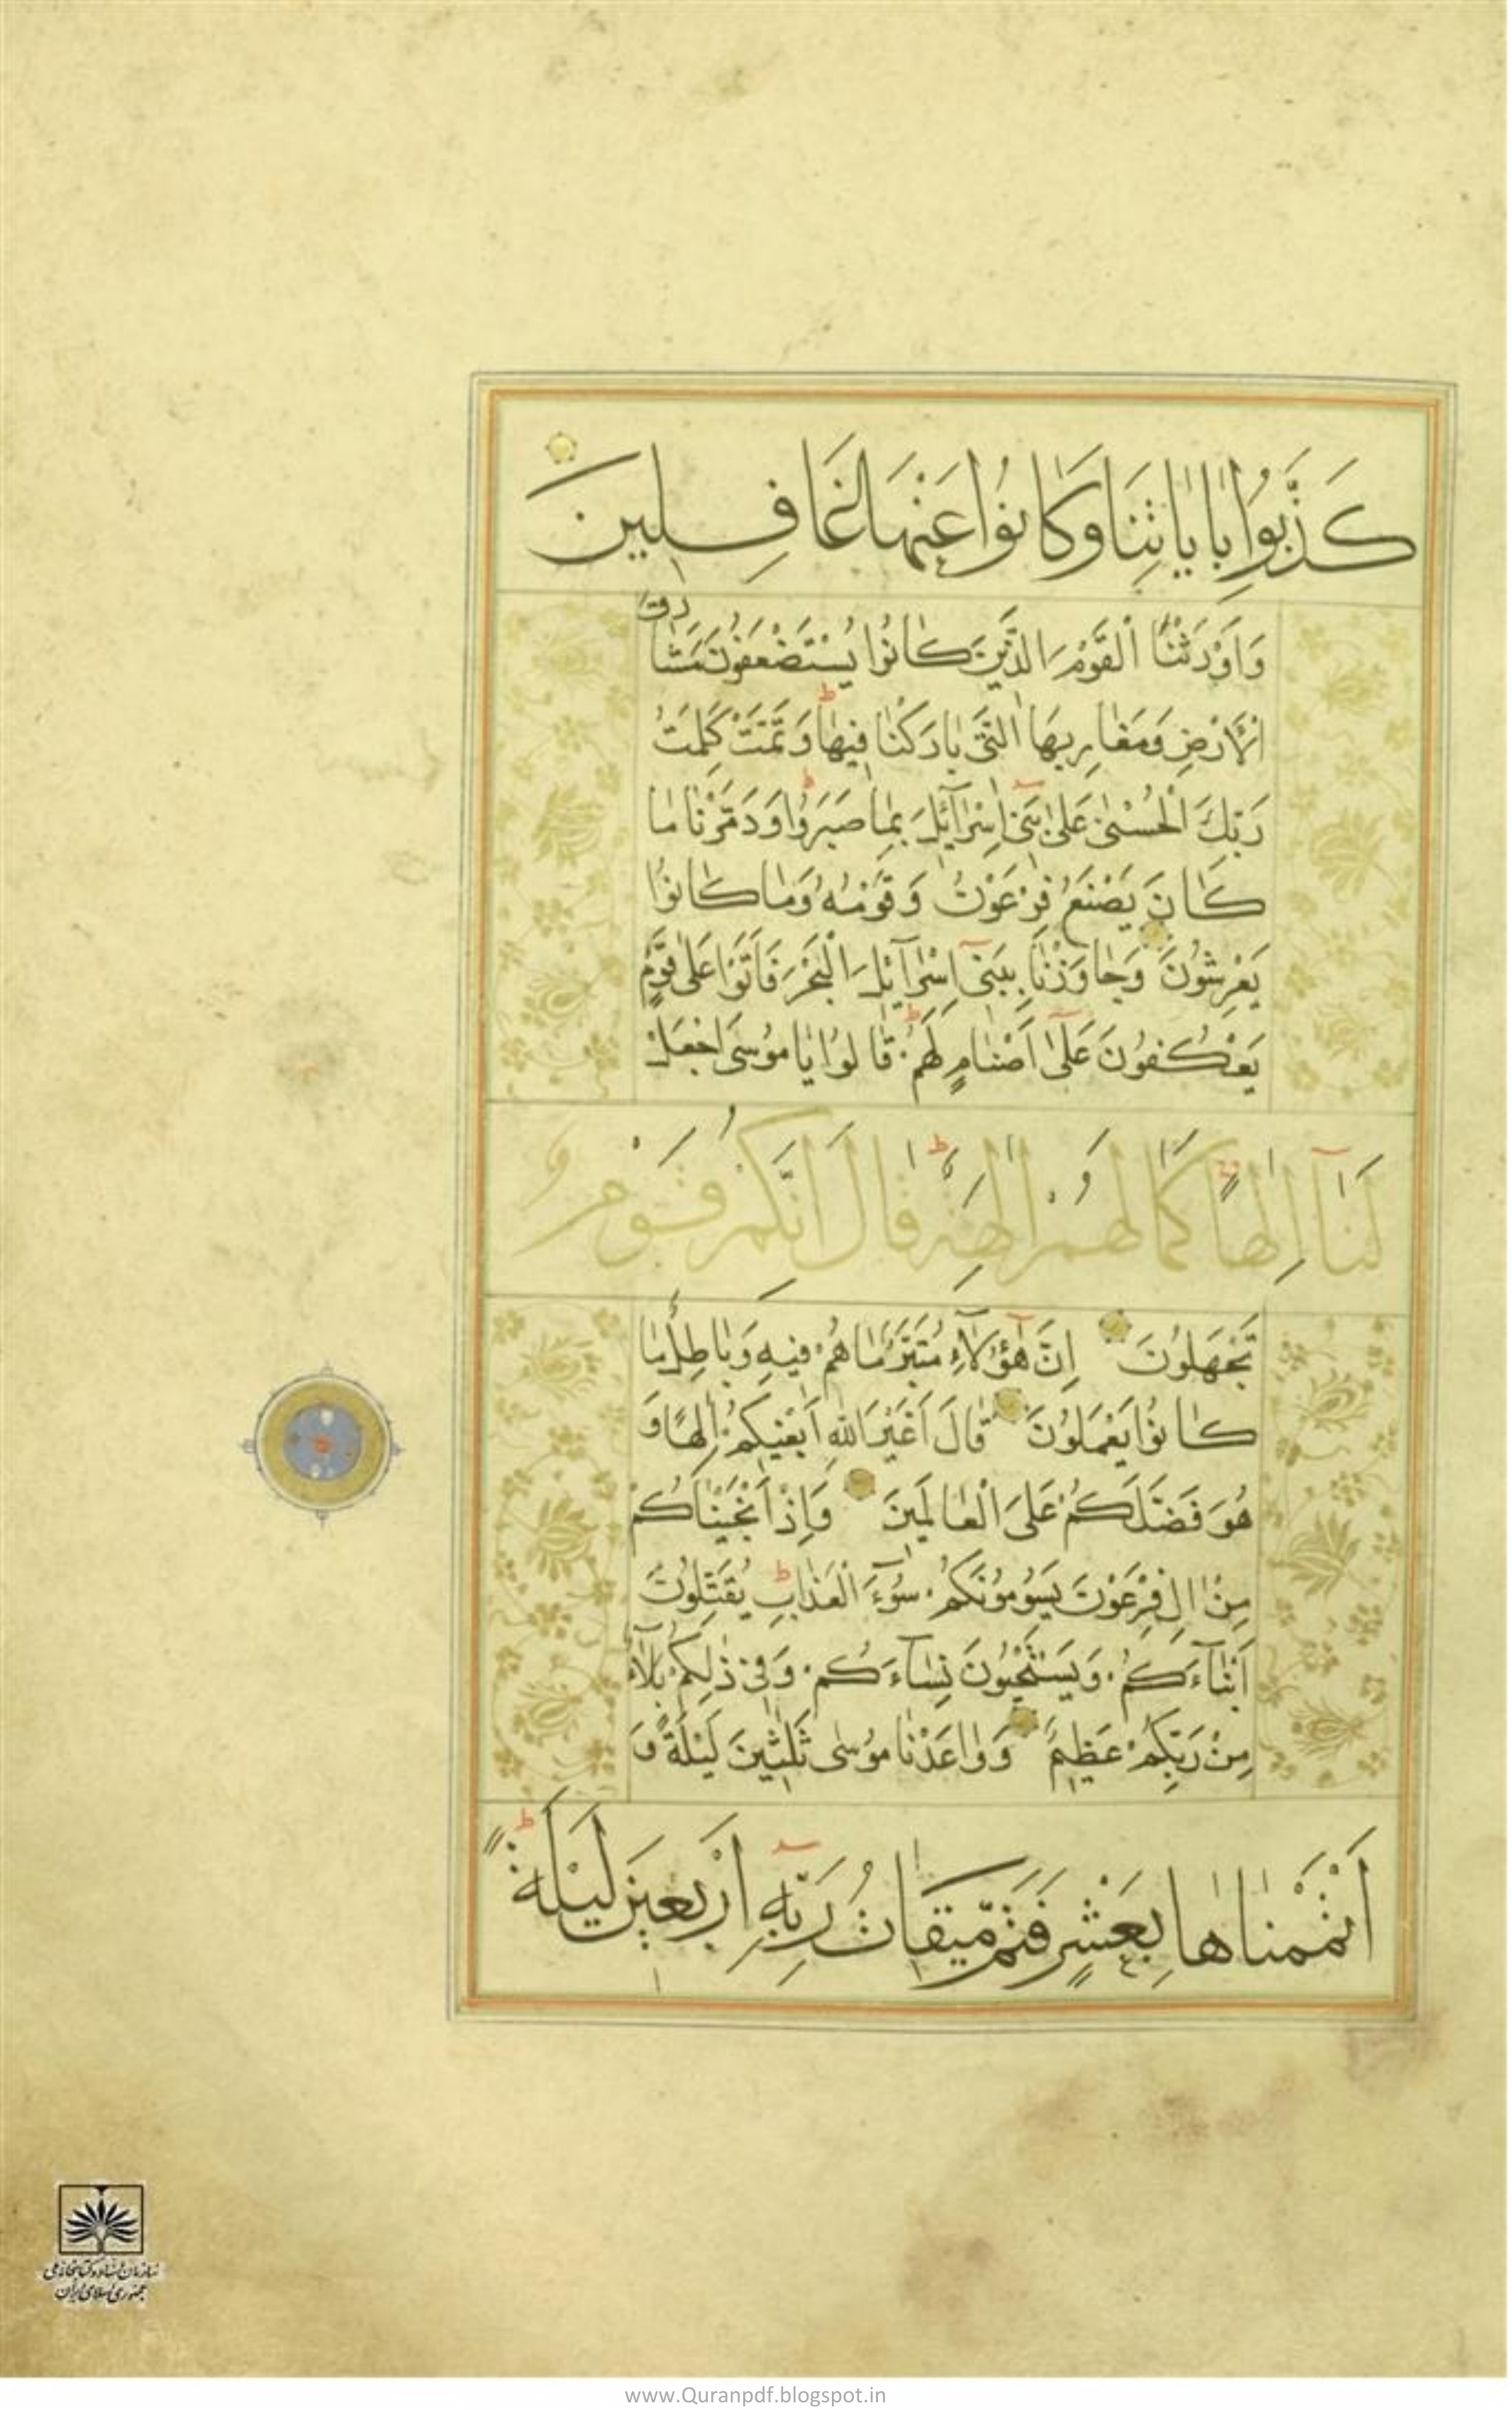 كَذَّبُوا بِاٰيَاتِنَا وَكَانُوا عَنْهَا غَافِلِينَ
وَاَوْرَثْنَا الْقَوْمَ الَّذِينَ كَانُوا يُسْتَضْعَفُونَ مَشَارِقَ
الْاَرْضِ وَمَغَارِبَهَا الَّتِى بَارَكْنَا فِيهَا وَتَمَّتْ كَلِمَتُ
رَبِّكَ الْحُسْنٰى عَلٰى بَنِى اِسْرَآئِلَ بِمَا صَبَرُوا وَدَمَّرْنَا مَا
كَانَ يَصْنَعُ فِرْعَوْنُ وَقَوْمُهُ وَمَا كَانُوا
يَعْرِشُونَ وَجَاوَزْنَا بِبَنِى اِسْرَآئِلَ الْبَحْرَ فَاَتَوْا عَلٰى قَوْمٍ
يَعْكُفُونَ عَلٰى اَصْنَامٍ لَهُمْ قَالُوا يَا مُوسَى اجْعَلْ
لَنَا اِلٰهًا كَمَا لَهُمْ اٰلِهَةٌ قَالَ اِنَّكُمْ قَوْمٌ
تَجْهَلُونَ اِنَّ هٰؤُلَآءِ مُتَبَّرٌ مَا هُمْ فِيهِ وَبَاطِلٌ مَا
كَانُوا يَعْمَلُونَ قَالَ اَغَيْرَ اللّٰهِ اَبْغِيكُمْ اِلٰهًا وَ
هُوَ فَضَّلَكُمْ عَلَى الْعَالَمِينَ وَاِذْ اَنْجَيْنَاكُمْ
مِنْ اٰلِ فِرْعَوْنَ يَسُومُونَكُمْ سُوٓءَ الْعَذَابِ يُقَتِّلُونَ
اَبْنَآءَكُمْ وَيَسْتَحْيُونَ نِسَآءَكُمْ وَفِى ذٰلِكُمْ بَلَآءٌ
مِنْ رَبِّكُمْ عَظِيمٌ وَوَاعَدْنَا مُوسٰى ثَلٰثِينَ لَيْلَةً وَ
اَتْمَمْنَاهَا بِعَشْرٍ فَتَمَّ مِيقَاتُ رَبِّهِ اَرْبَعِينَ لَيْلَةً
سازمان اسناد و کتابخانه ملی
جمهوری اسلامی ایران
www.Quranpdf.blogspot.in